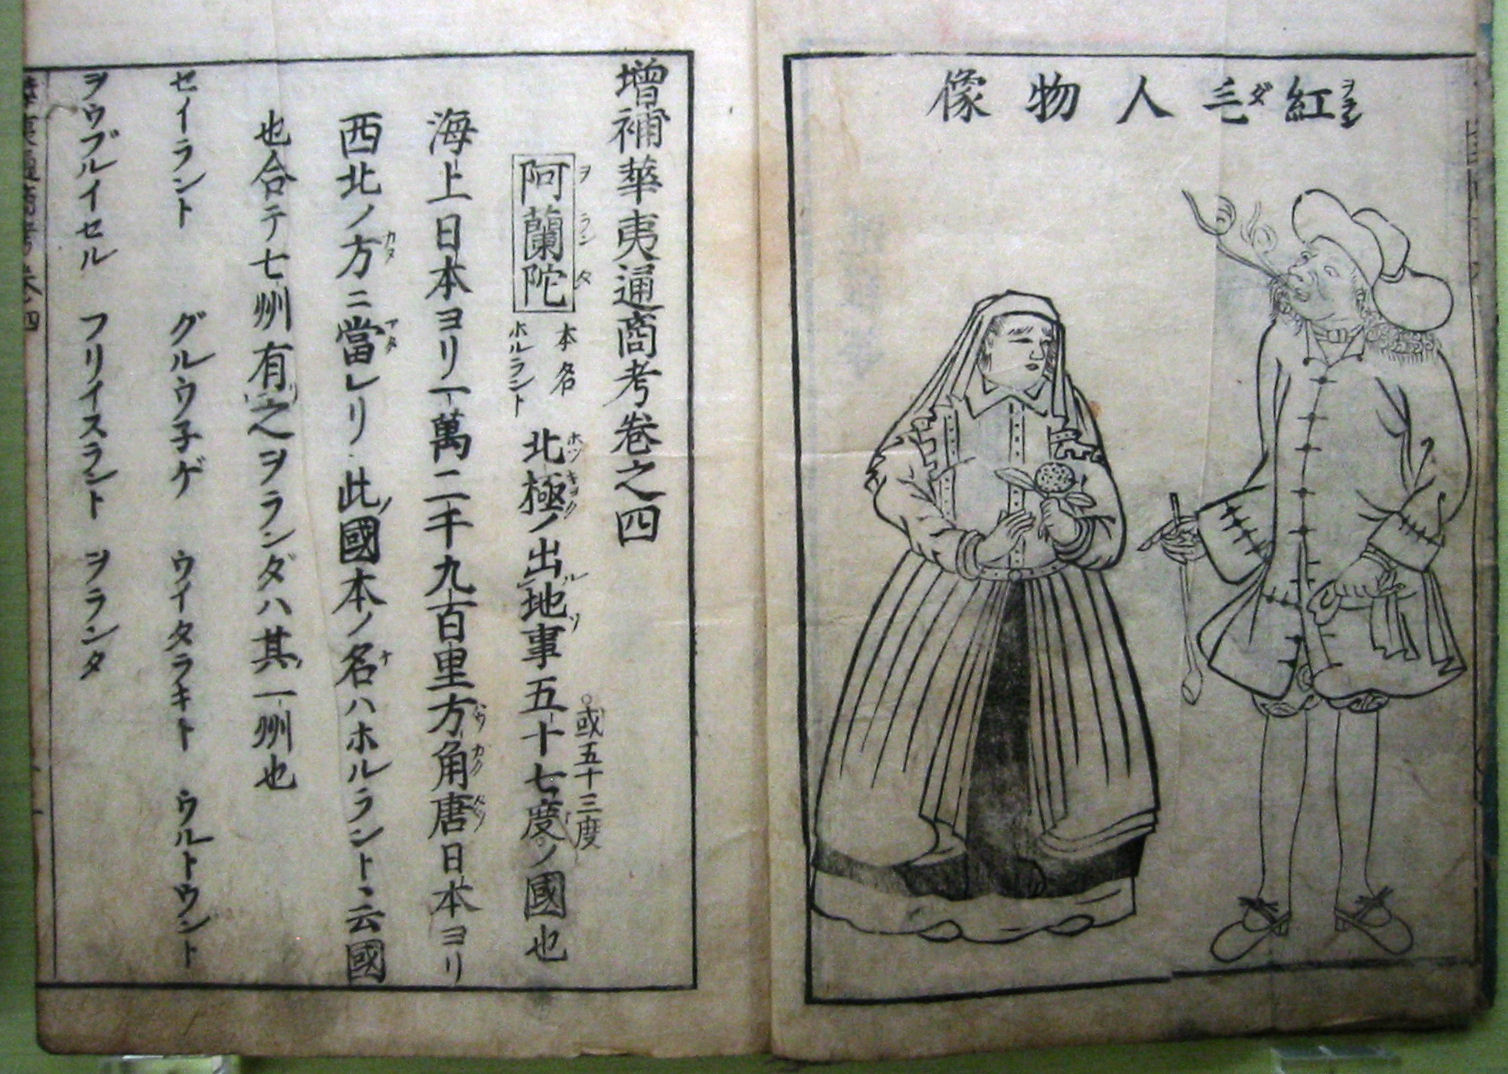 紅毛人物像
増補華夷通商考巻之四
阿蘭陀 本名ホルラント 北極ノ出地事五十七度ノ國也
或五十三度
海上日本ヨリ一萬二千九百里方角唐日本ヨリ
西北ノ方ニ當レリ此國本ノ名ハホルラントヽ云國
也合テ七州有之ヲランダハ其一州也
セイラント グルウ子ゲ ウイタラキト ウルトウント
ヲウブルイセル フリイスラント ヲランタ